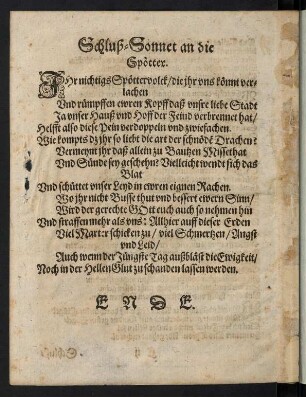 Schluß-Sonnet an die
Spötter.
IHr nichtigs Spöttervolck/die jhr vns könnt ver-
lachen
Vnd rümpffen ewren Kopff daß vnsre liebe Stadt
Ja vnser Hauß vnd Hoff der Feind verbrennet hat/
Helfft also diese Pein verdoppeln vnd zwiefachen.
Wie kompts dz jhr so liebt die art der schnöde Drachen?
Vermeynt jhr daß allein zu Bautzen Missethat
Vnd Sünde sey geschehn? Vielleicht wendt sich das
Blat
Vnd schüttet vnser Leyd in ewren eignen Rachen.
Wo jhr nicht Busse thut vnd bessert ewern Sinn/
Wird der gerechte GOtt euch auch so nehmen hin
Vnd straffen mehr als vns: Allhier auff dieser Erden
Viel Marter schicken zu/ viel Schmertzen/ Angst
vnd Leid/
Auch wenn der Jüngste Tag außbläst die Ewigkeit/
Noch in der Hellen Glut zu schanden lassen werden.
E N D E.